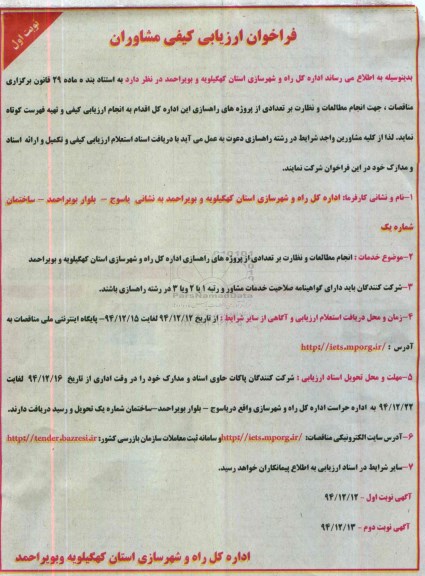 نوبت اول
فراخوان ارزیابی کیفی مشاوران
بدینوسیله به اطلاع می رساند اداره کل راه و شهرسازی استان کهگیلویه و بویراحمد در نظر دارد به استناد بند ه ماده ۲۹ قانون برگزاری
مناقصات ، جهت انجام مطالعات و نظارت بر تعدادی از پروژه های راهسازی این اداره کل اقدام به انجام ارزیابی کیفی و تهیه فهرست کوتاه
نماید. لذا از کلیه مشاورین واجد شرایط در رشته راهسازی دعوت به عمل می آید با دریافت اسناد استعلام ارزیابی کیفی و تکمیل و ارائه اسناد
و مدارک خود در این فراخوان شرکت نمایند.
۱-نام و نشانی کارفرما: اداره کل راه و شهرسازی استان کهگیلویه و بویراحمد به نشانی یاسوج – بلوار بویراحمد – ساختمان
شماره یک
۲-موضوع خدمات : انجام مطالعات و نظارت بر تعدادی از پروژه های راهسازی اداره کل راه و شهرسازی استان کهگیلویه و بویراحمد
۳-شرکت کنندگان باید دارای گواهینامه صلاحیت خدمات مشاور و رتبه ۱ یا ۲ ویا ۳ در رشته راهسازی باشند.
ParsNamadData
۴-زمان و محل دریافت استعلام ارزیابی و آگاهی از سایر شرایط : از تاریخ ۹۴/۱۲/۱۲ لغایت ۹۴/۱۲/۱۵– پایگاه اینترنتی ملی مناقصات به
آدرس : http://iets.mporg.ir/
۵-مهلت و محل تحویل اسناد ارزیابی : شرکت کنندگان پاکات حاوی اسناد و مدارک خود را در وقت اداری از تاریخ ۹۴/۱۲/۱۶ لغایت
۹۴/۱۲/۲۲ به اداره حراست اداره کل راه و شهرسازی واقع دریاسوج – بلوار بویراحمد–ساختمان شماره یک تحویل و رسید دریافت دارند.
۶-آدرس سایت الکترونیکی مناقصات: http://iets.mporg.ir/ و سامانه ثبت معاملات سازمان بازرسی کشور: http://tender.bazresi.ir
۷-سایر شرایط در اسناد ارزیابی به اطلاع پیمانکاران خواهد رسید.
آگهی نوبت اول - ۹۴/۱۲/۱۲
آگهی نوبت دوم - ۹۴/۱۲/۱۳
اداره کل راه و شهرسازی استان کهگیلویه وبویراحمد